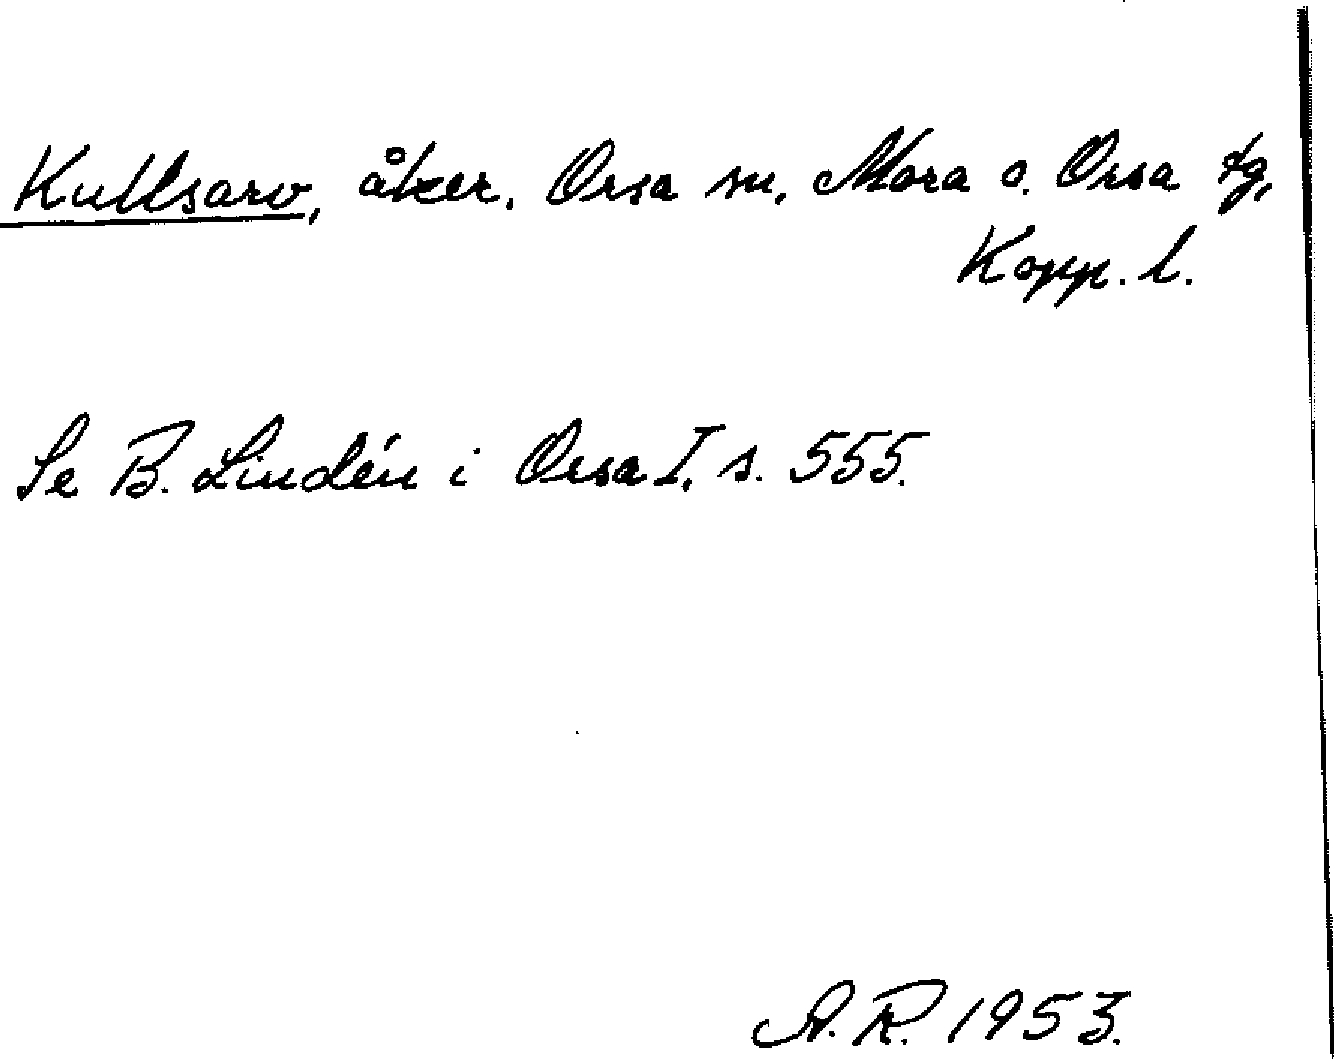 Kullsarv, åker. Orsa sn, Mora o. Orsa tg,
Kopp. l.
Se B. Lindén i Orsa I, s. 555.
A. R. 1953.